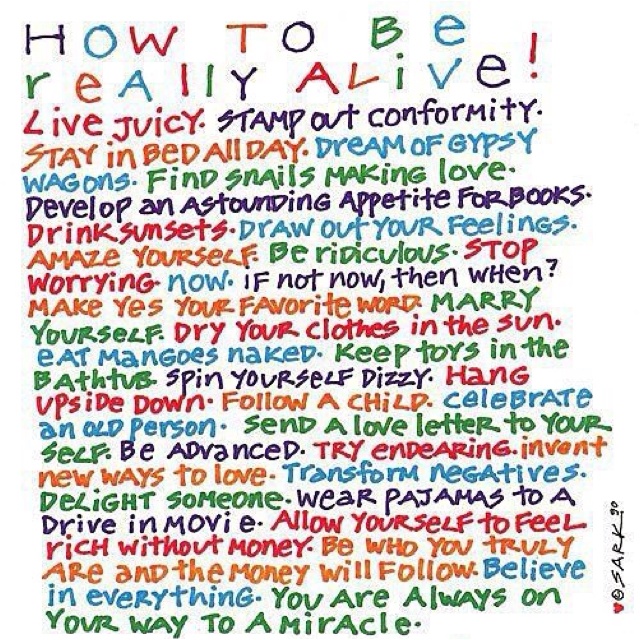 HOW TO Be
reALLY ALive!
Live Juicy. STAMP out conformity.
STAY in BeD All DAY. Dream of GYPSY
WAGons. Find snails MAKing love.
Develop an Astounding Appetite For Books.
Drink sunsets. Draw out Your Feelings.
AMAZE YOURSELF. Be ridiculous. STOP
Worrying now. IF not now, then when?
MAKE Yes Your FAvorite worD. MARRY
YOURSELF. DRY YOUR clothes in the sun.
eAT MANGoes naKeD. Keep toys in the
BAthtuB. Spin YOURSELF Dizzy. Hang
UPsiDe Down. Follow A CHiLD. celeBRATe
an oLD person. Send A love letter to YOUR
SeLF. Be ADvanceD. TRY enDeARing. invent
new wAYs to love. Transform neGATives.
DeLiGHT someone. Wear PAJAMAS to A
Drive in movie. Allow YOURSELF to FeeL
riCH without Money. Be WHO YOU TRULY
ARe and the Money will Follow. Believe
in everything. You Are Always on
YOUR WAY To A MirAcle.
♥©SARK.90